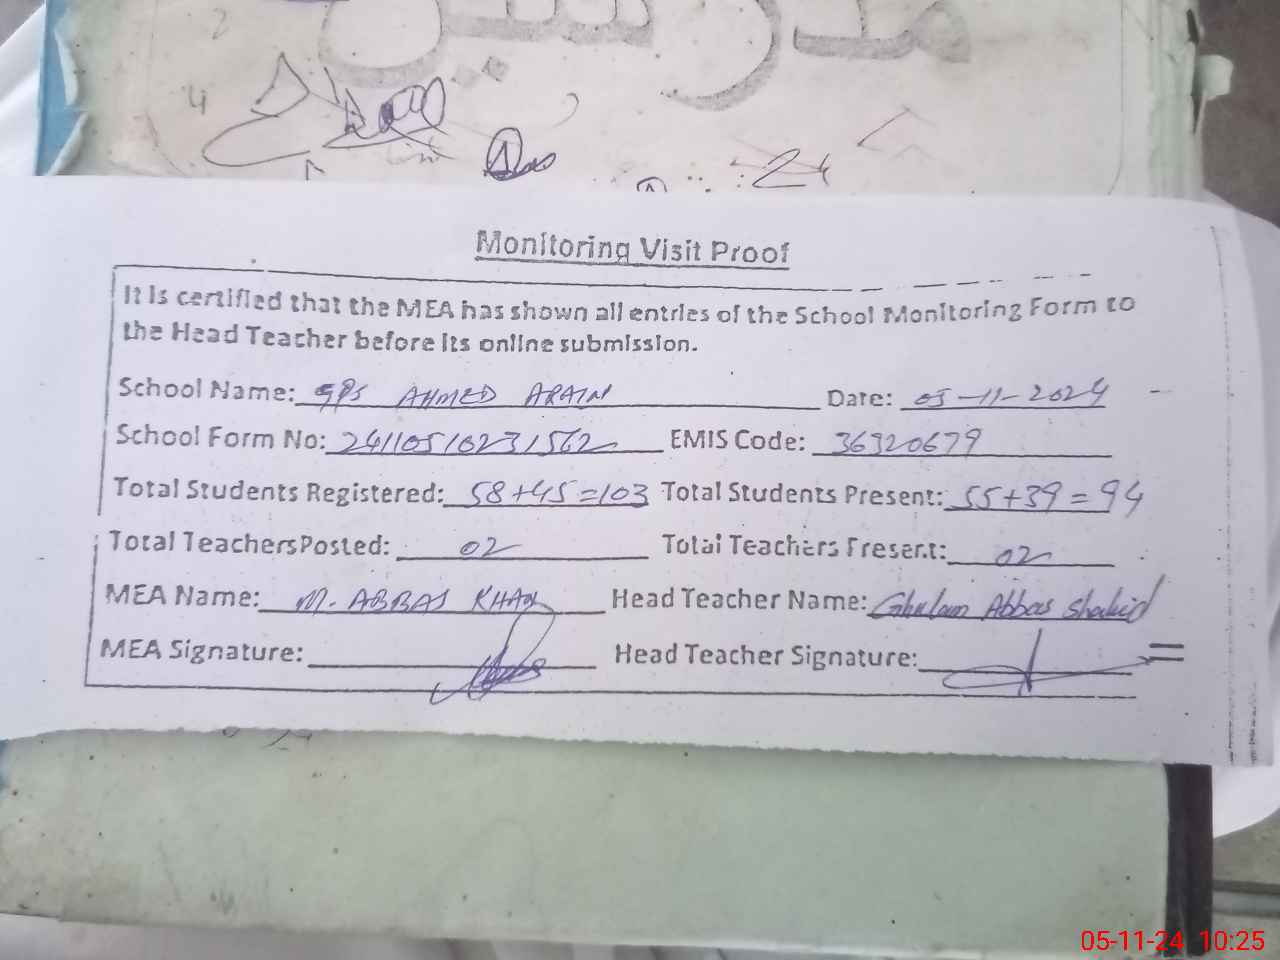 مدرسین
Monitoring Visit Proof
It is certified that the MEA has shown all entries of the School Monitoring Form to
the Head Teacher before its online submission.
School Name: GPS AHMED ARAIN Date: 05-11-2024
School Form No: 24110510231562 EMIS Code: 36320679
Total Students Registered: 58+45=103 Total Students Present: 55+39=94
Total Teachers Posted: 02 Total Teachers Present: 02
MEA Name: M. ABBAS KHAN Head Teacher Name: Ghulam Abbas Shahid
MEA Signature: Head Teacher Signature:
05-11-24 10:25